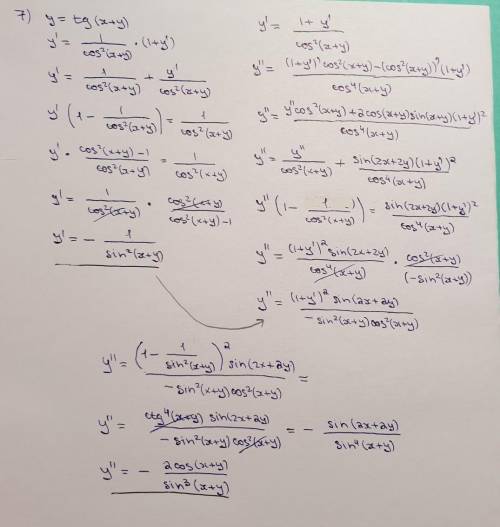 7) y = tg(x+y)
y' = 1/cos²(x+y) · (1+y')
y' = 1/cos²(x+y) + y'/cos²(x+y)
y' (1 - 1/cos²(x+y)) = 1/cos²(x+y)
y' · (cos²(x+y)-1)/cos²(x+y) = 1/cos²(x+y)
y' = 1/cos²(x+y) · cos²(x+y)/(cos²(x+y)-1)
y' = - 1/sin²(x+y)
y' = (1+y')/cos²(x+y)
y'' = ((1+y')' cos²(x+y) - (cos²(x+y))' (1+y'))/cos⁴(x+y)
y'' = (y'' cos²(x+y) + 2cos(x+y) sin(x+y)(1+y')²)/cos⁴(x+y)
y'' = y''/cos²(x+y) + sin(2x+2y)(1+y')²/cos⁴(x+y)
y'' (1 - 1/cos²(x+y)) = sin(2x+2y)(1+y')²/cos⁴(x+y)
y'' = (1+y')² sin(2x+2y)/cos⁴(x+y) · cos²(x+y)/(-sin²(x+y))
y'' = (1+y')² sin(2x+2y)/(-sin²(x+y)cos²(x+y))
y'' = (1 - 1/sin²(x+y))² sin(2x+2y)/(-sin²(x+y)cos²(x+y)) =
y'' = ctg⁴(x+y) sin(2x+2y)/(-sin²(x+y)cos²(x+y)) = - sin(2x+2y)/sin⁴(x+y)
y'' = - 2cos(x+y)/sin³(x+y)